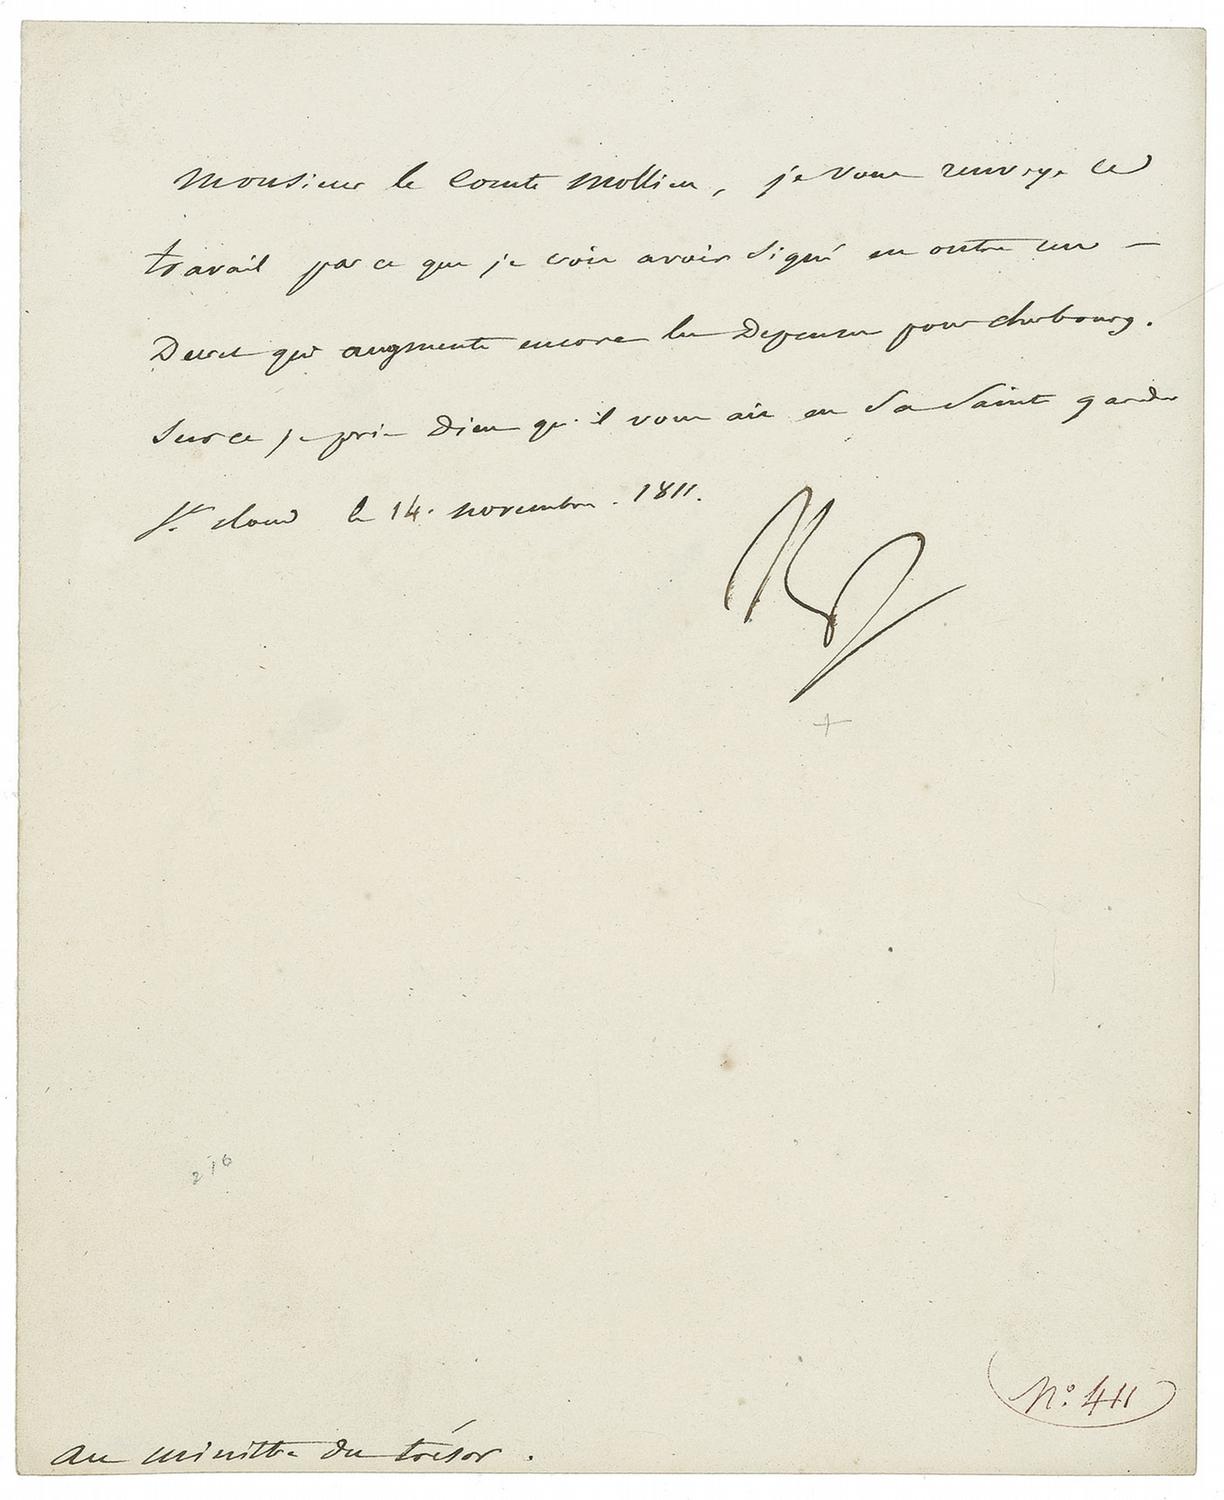 Monsieur le Comte Mollien, je vous renvoye ce
travail parce que je crois avoir signé en outre un —
Decret qui augmente encore les Depenses pour cherbourg.
Sur ce je prie Dieu qu'il vous ait en Sa Sainte garde
St. cloud le 14. novembre. 1811.
Np
+
276
N.o 411
au ministre du trésor.